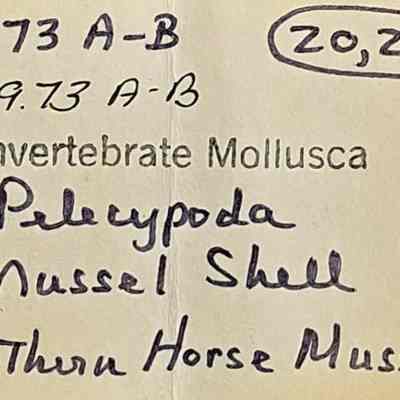 73 A-B 20,2
9.73 A-B
nvertebrate Mollusca
Pelecypoda
Mussel Shell
Horse Mus